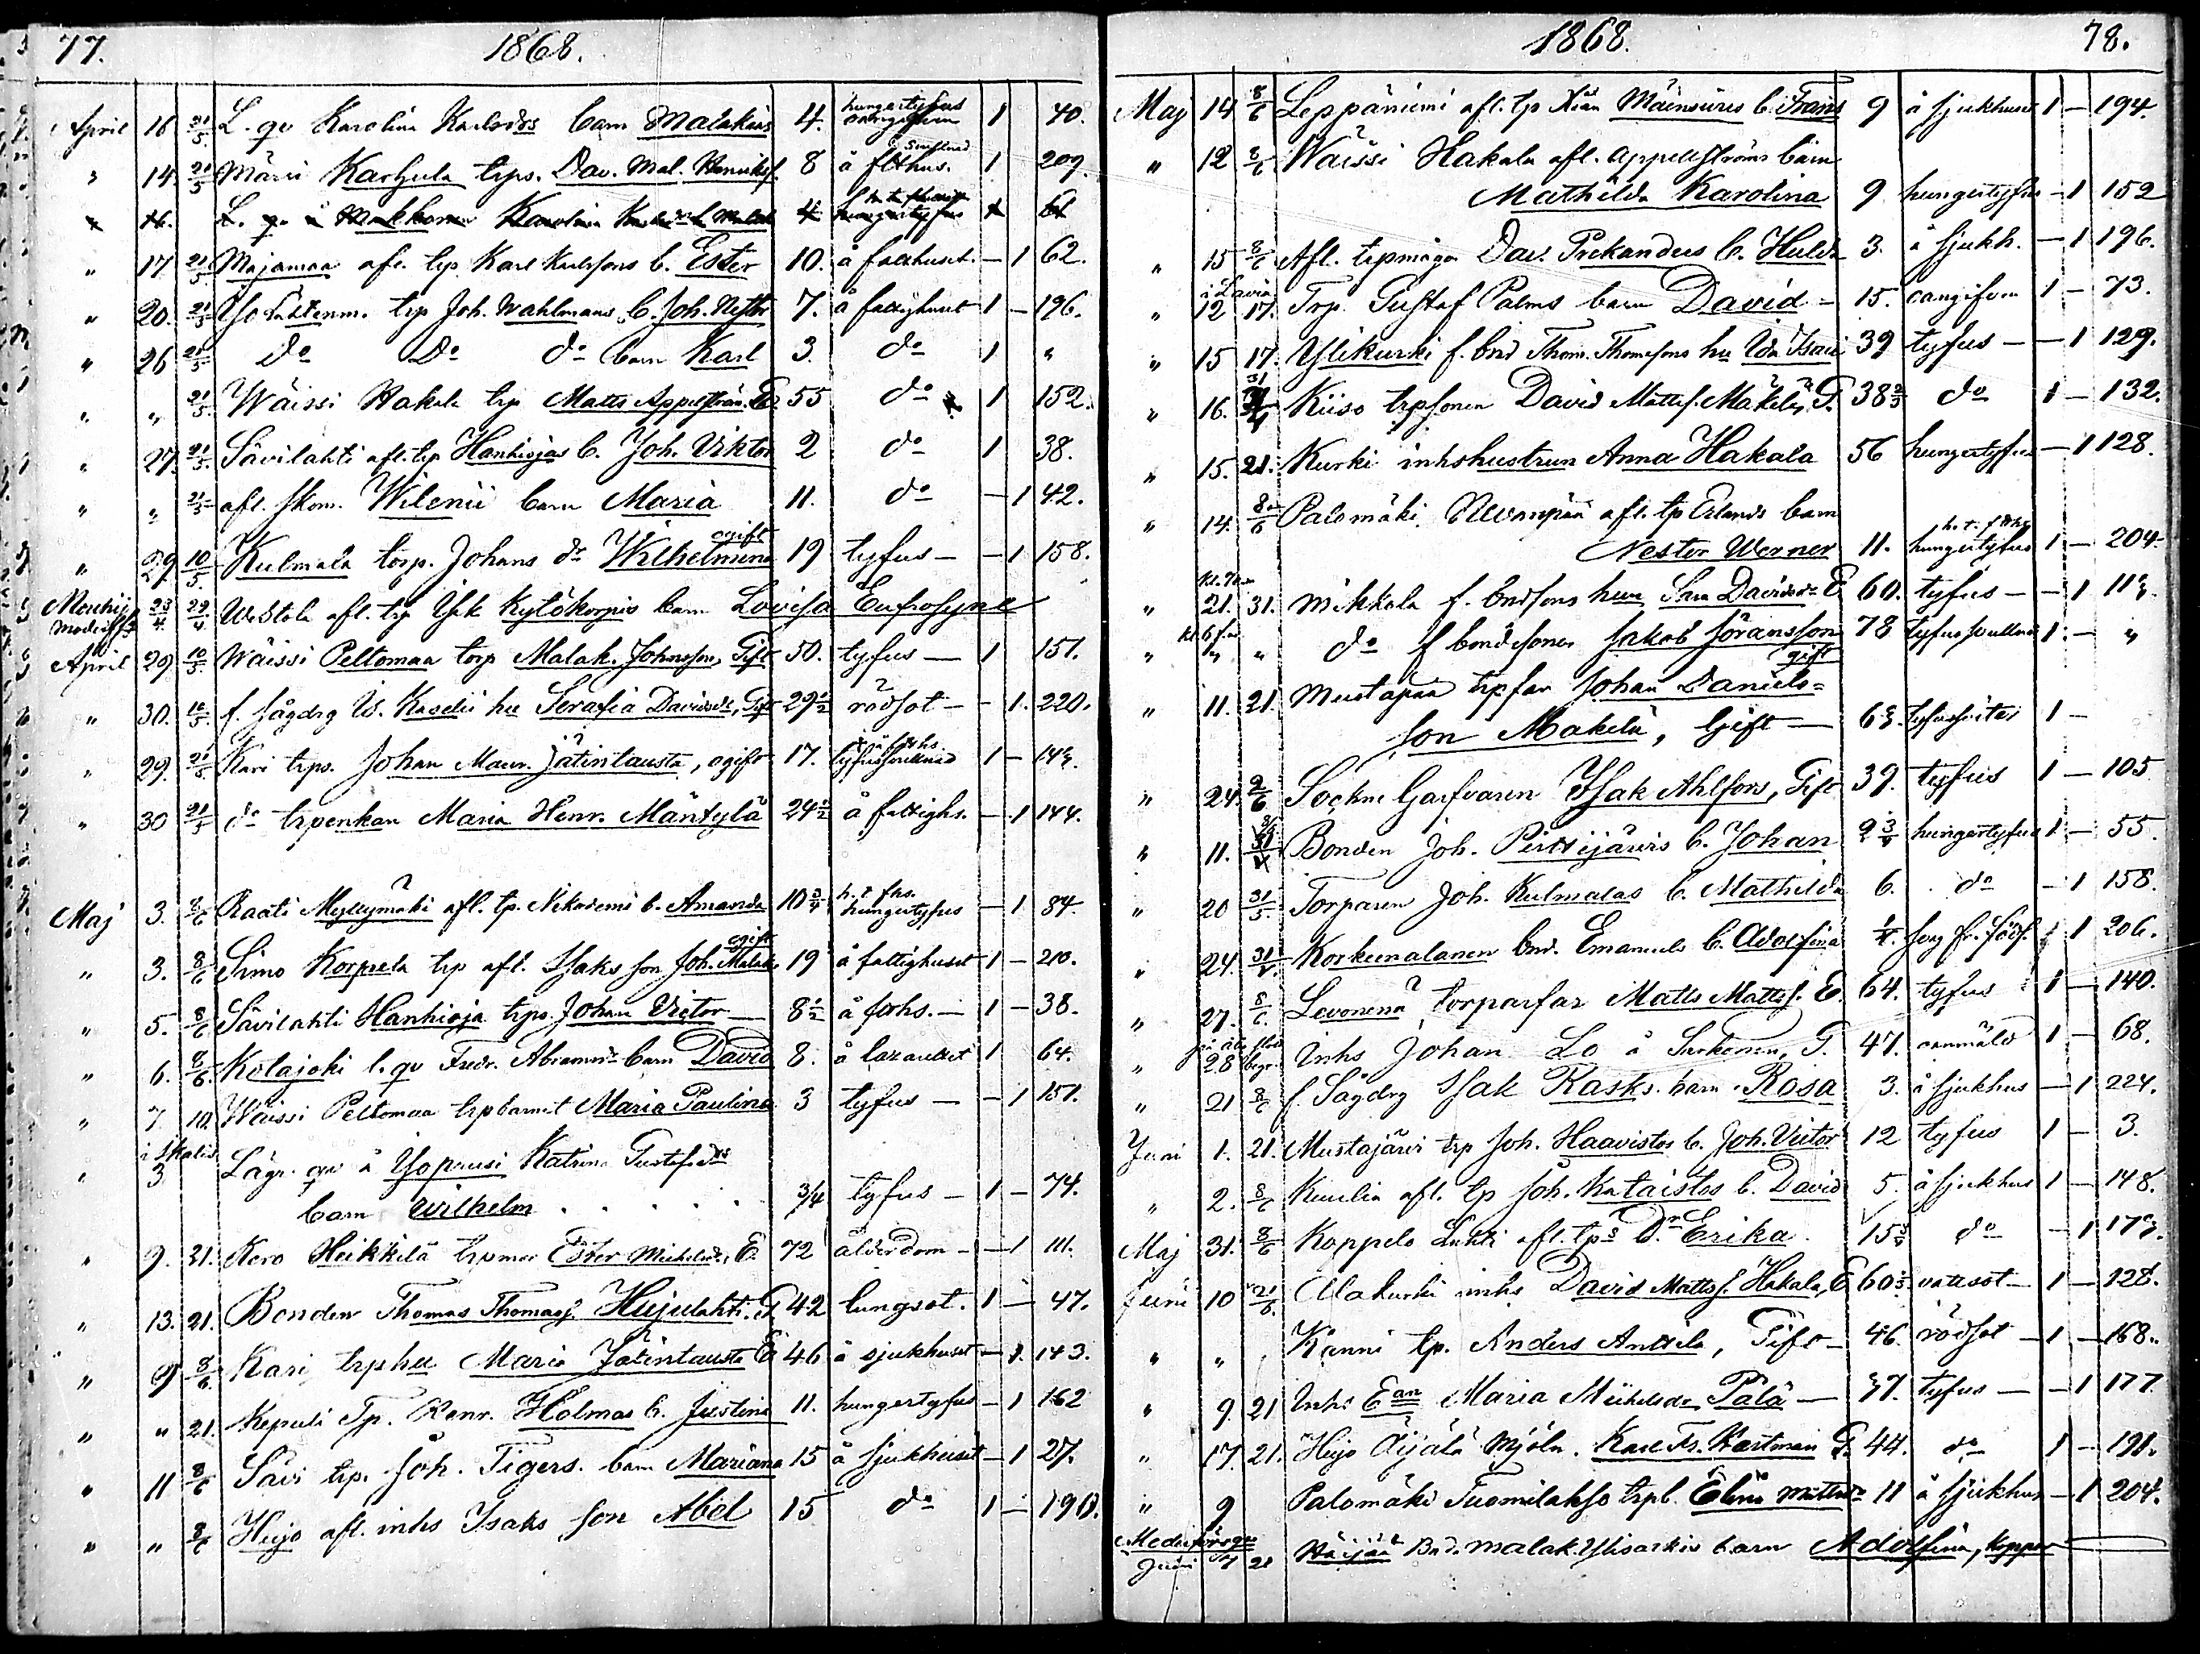 77. 1868.
April 16 21/5 L. qv Karolina Karlsd:s barn Malakias 4. hungertyfus 1 40.
" 14. 21/5 Märri Karhula trps. Dav. Mal. Henriks. 8 å ftthus. 1 209.
" 16. L. qv å Karolina 4 hungertyfus 1 61
" 17 21/5 Majamaa afl. trp. Karl Karlssons b. Ester 10. å fatthuset. – 1 62.
" 20. 21/5 trp Joh. Wahlmans b. Joh. Nestor 7. å fattighuset 1 – 196.
" 26 21/5 do Do do barn Karl 3. do 1 "
" " 21/5 Wäissi Hakala trp Matts Appelström E. 55 do 1 152.
" 27. 21/5 Sävilahti afl. trp Hanhiojas b. Joh. Viktor 2 do 1 38.
" " 21/5 afl. skom. Wilenii barn Maria 11. do – 1 42.
" 29 10/5. Kulmala torp. Johans dr Wilhelmina ogift 19 tyfus – – 1 158.
29/4. afl. trp Isk Kytökorpis barn Lovisa Eufrosyne
April 29. 10/5. Wäissi Peltomaa torp Malak. Johansson, Gift 50. tyfus – 1 151.
" 30. 10/5 f. sågdrg W. Kaselii hu Serafia Davidsdr, Gift 29 1/2 rödsot – – 1. 220.
" 29. 21/5 Kari trps. Johan Maur. Jätintausta, ogift 17. 1 – 143.
" 30 21/5 do trpenkan Maria Henr. Mäntylä 24 1/2 å fattighs. – 1 144.
Maj 3. 8/6 Raati Myllymäki afl. tp. Nikodemi b. Amanda 10 3/4 hungertyfus – 1 84.
" 3. 8/6 Simo Korpela trp afl. Isaks son Joh. Malak. ogift 19 å fattighuset 1 – 210.
" 5. 8/6 Sävilahti Hanhioja trps. Johan Victor – 8 1/2 å ftths. – 1 – 38.
" 6. 8/6. Kolajoki l. qv Fredr. Abramsdr barn David 8. å lazarettet 1 64.
" 7 10. Wäissi Peltomaa trpbarnet Maria Paulina 3 tyfus – – 1 151.
" 3 Lägr. qv å Yoprusi Katrina Gustafsds
barn Wilhelm . . . . . 3/4 tyfus – 1 – 74.
" 9. 21. Kero Heikkilä trpmor Ester Michelsdr, E. 72 ålderdom – – 1 111.
" 13. 21. Bonden Thomas Thomass. Hujulahti. G. 42 lungsot. 1 – 47.
" 9 8/6. Kari trphu Maria Jätintausta E 46 å sjukhuset – 1 143.
" " 21. Kepuli Tp. Henr. Holmas b. Justina 11. hungertyfus – 1 162
" 11 8/6 Sävi trp. Joh. Tigers. barn Mariana 15 å sjukhuset – 1 27.
" " 8/6 Heijo afl. inhs Isaks son Abel 15 do 1 – 190.
1868. 78.
Maj 14 8/6 Leppäniemi afl. tp Mäensivus b. Frans 9 å sjukhuset 1 – 194.
" 12 8/6 Wäissi Hakala afl. Appellströms barn
Mathilda Karolina 9 hungertyfus – 1 152
" 15 8/6 Afl. trpmåga Dav. Prekanders b. Hulda 3. å sjukh. – 1 196.
i Lavia
" 12 17. Trp. Gustaf Palms barn David – 15. oangifven 1 – 73.
" 15 17. Ylikurki f. bnd Thom. Thomssons hu 39 tyfus – – 1 129.
" 16. 31 Kiiso trpsonen David Mattss. Mäkelä, G. 38 2/3 do 1 – 132.
" 15. 21. Kurki inhshustrun Anna Hakala 56 hungertyfus – 1 128.
" 14. 8/6 Palomäki afl. tp Erlands barn
Nestor Werner 11. hungertyfus 1 – 204.
" 21. 31. Mikkola f. bndsons hun Sara Davidsdr E 60. tyfus – – 1 113.
" " " do f. bondesonen Jakob Göransson 78 1. – "
" 11. 21. Mustapää trpfar Johan Daniels- gift
son Makela, Gift – 63. 1 –
" 24. 2/6 Sockne Garfvaren Isak Ahlfors, Gift 39. tyfus 1 – 105
" 11. Bonden Joh. Perttijärvis b. Johan 2 3/4 hungertyfus 1 – 55.
" 20 31/5. Torparen Joh. Kulmalas b. Mathilda 6. do – 1 158.
" 24. Korkeenalanen bnd. Emanuels b. Adolfina 1 206.
" 27. 8/6. Levonena torparfar Matts Mattss. E. 64. tyfus 1 – 140.
" 28 begr. Inhs Johan Lo å G. 47. oanmäld 1 – 68.
" 21 8/6 f. Sågdrg Isak Rasks. barn Rosa 3. å sjukhus – 1 224.
Juni 1. 21. Mustajärvi trp Joh. Haavistos b. Joh. Victor 12 tyfus 1 – 3.
" 2. 8/6 afl. tp Joh. Kataistos b. David 5. å sjukhus 1 – 148.
Maj 31. 8/6 Koppelo Luhti afl. tps Dr Erika. 15 3/4 do – 1 173.
Juni 10 21/6 Alakurki inhs David Mattss. Hakala, E 60 vattsot – 1 – 128.
" " Känni tp. Anders Anttila, Gift – 46. rödsot – 1 – 168.
" 9. 21 Inhs Ean Maria Michelsdr Pälä – 37. tyfus – – 1 177.
" 17. 21. Heijo Äijälä Mjöln. G. 44. do 1 – 191.
" 9 Palomäki Tuomilakso trpb. Elina Mattsdr 11 å sjukhus – 1 204.
Juni 21 Bnd. Malak. Ylisarkis barn Adolfina, koppor